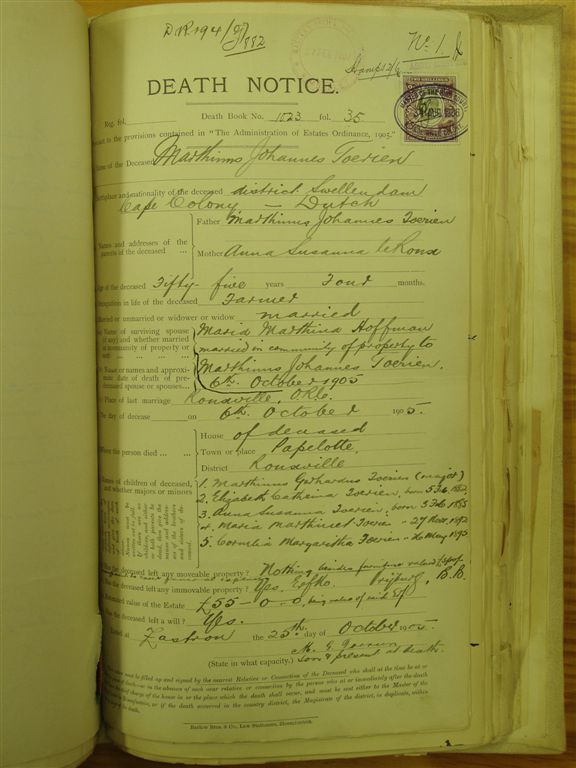 DR194/
882
No. 1
Stamp 12/6
DEATH NOTICE.
Reg. fol. Death Book No. 1023 fol. 35
to the provisions contained in "The Administration of Estates Ordinance, 1905."
Name of the Deceased Marthinus Johannes Toerien
Birthplace and nationality of the deceased district Swellendam
Cape Colony – Dutch
Names and addresses of the parents of the deceased ...
Father Marthinus Johannes Toerien
Mother Anna Susanna le Roux
Age of the deceased Fifty-five years Four months.
Occupation in life of the deceased Farmer
Married or unmarried or widower or widow married
Name of surviving spouse (if any) and whether married in community of property or
Maria Marthina Hoffman
married in community of property to
Marthinus Johannes Toerien.
Name or names and approximate date of death of pre-deceased spouse or spouses...
6th October 1905
Place of last marriage Rouxville, O.R.C.
The day of decease on 6th October 1905.
Where the person died ...
House of deceased
Town or place Papelotte
District Rouxville
Names of children of deceased, and whether majors or minors
1. Marthinus Gerhardus Toerien (major)
2. Elizabeth Cathrina Toerien, born 5 Feb 1882
3. Anna Susanna Toerien, born 5 Feb 1885
4. Maria Marthina Toerien - 27 Nov. 1892
5. Cornelia Margaritha Toerien - 20 May 1895
deceased left any moveable property? Nothing besides furniture valued
deceased left any immovable property? Yes. Vrijburg, B.B.
Estimated value of the Estate £55-0-0, being value of said
deceased left a will? Yes.
Dated at Zastron the 25th day of October 1905.
(State in what capacity.) Son & present at death.
must be filled up and signed by the nearest Relative or Connection of the Deceased who shall at the time be at or
or in the absence of such near relative or connection by the person who at or immediately after the death
charge of the house in or the place which the death shall occur, and must be sent either to the Master of the
or if the death occurred in the country district, the Magistrate of the district, in duplicate, within
the death.
Barlow Bros. & Co., Law Stationers, Bloemfontein.